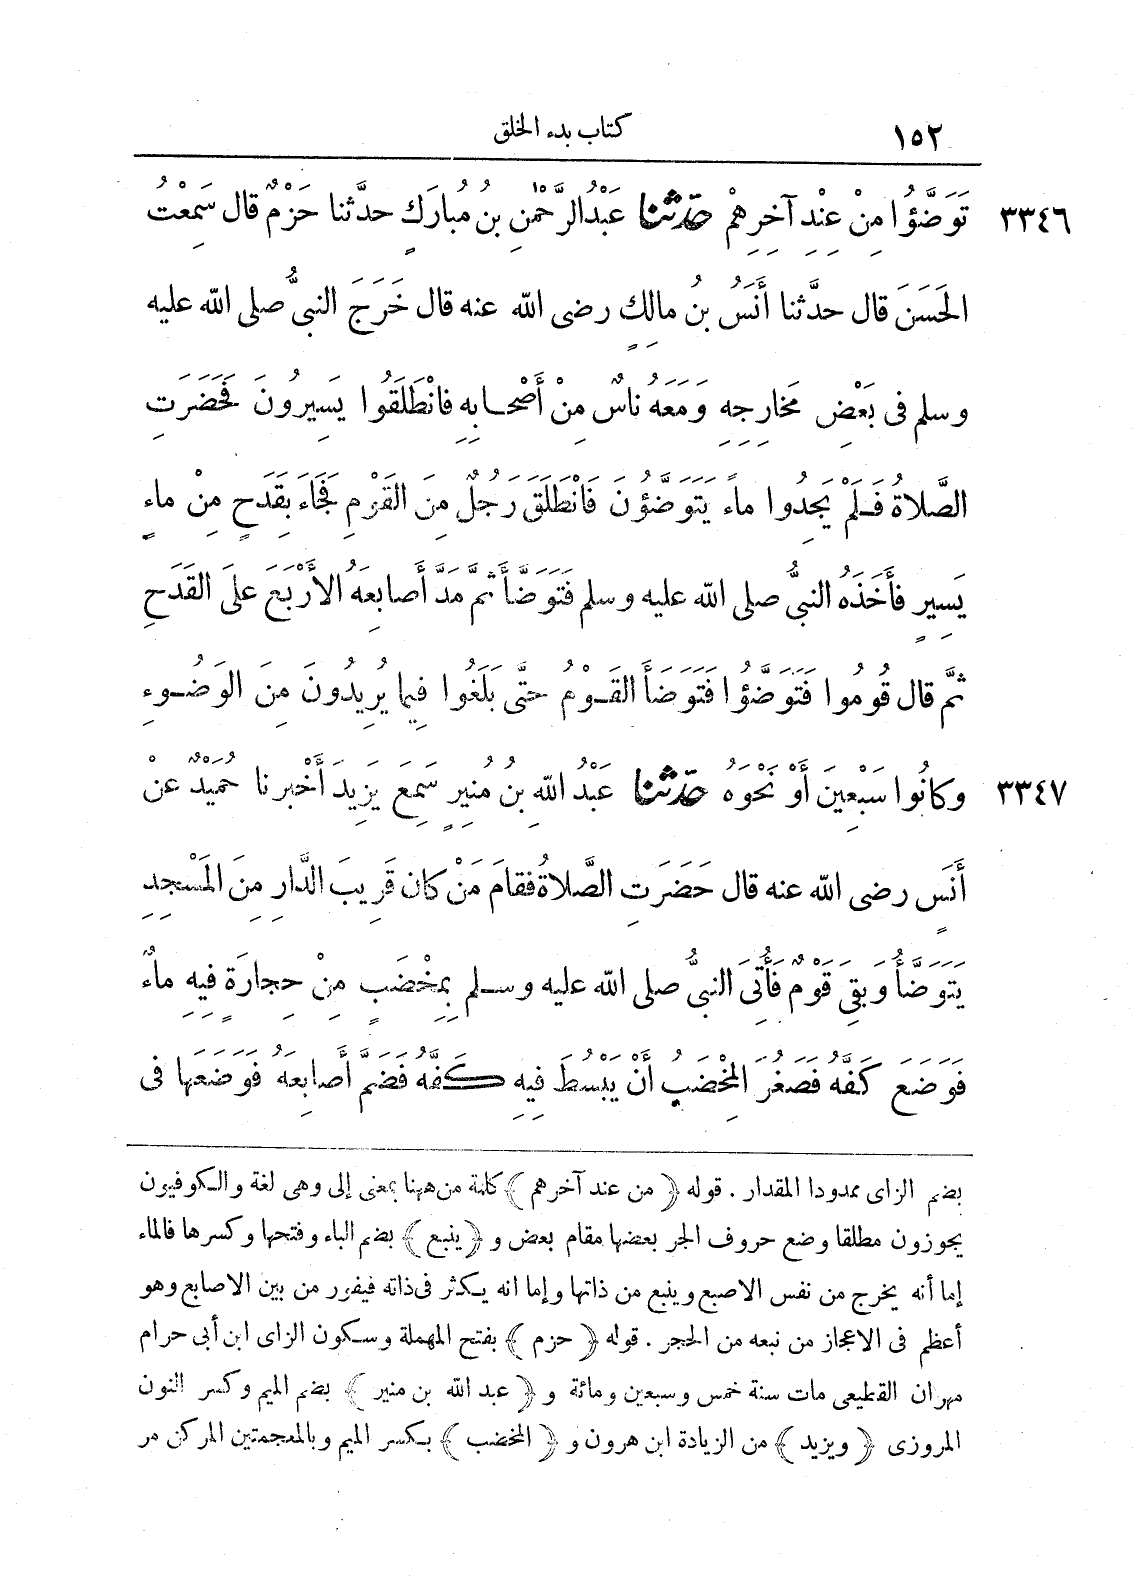 ١٥٢ كتاب بدء الخلق
٣٣٤٦ تَوَضَّؤُا مِنْ عِنْدِ آخِرِهِمْ حَدّثنا عَبْدُ الرَّحْمٰنِ بنُ مُبارَكٍ حدَّثنا حَزْمٌ قال سَمِعْتُ
الحَسَنَ قال حدَّثنا أَنَسُ بنُ مالِكٍ رضى الله عنه قال خَرَجَ النبىُّ صلى الله عليه
وسلم فى بَعْضِ مَخارِجِهِ وَمَعَهُ ناسٌ مِنْ أَصْحابِهِ فانْطَلَقُوا يَسِيرُونَ فَحَضَرَتِ
الصَّلاةُ فَلَمْ يَجِدُوا ماءً يَتَوَضَّؤُنَ فَانْطَلَقَ رَجُلٌ مِنَ القَوْمِ فَجَاءَ بِقَدَحٍ مِنْ ماءٍ
يَسِيرٍ فأَخَذَهُ النبىُّ صلى الله عليه وسلم فَتَوَضَّأَ ثُمَّ مَدَّ أَصابِعَهُ الأَرْبَعَ علَى القَدَحِ
ثُمَّ قال قُومُوا فَتَوَضَّؤُا فَتَوَضَأَ القَوْمُ حتَّى بَلَغُوا فِيما يُرِيدُونَ مِنَ الوَضُوءِ
٣٣٤٧ وكانُوا سَبْعِينَ أَوْ نَحْوَهُ حَدّثنا عَبْدُ اللهِ بنُ مُنِيرٍ سَمِعَ يَزِيدَ أَخْبرنا حُمَيْدٌ عنْ
أَنَسٍ رضى الله عنه قال حَضَرَتِ الصَّلاةُ فقامَ مَنْ كان قَرِيبَ الدَّارِ مِنَ المَسْجِدِ
يَتَوَضَّأُ وبَقِىَ قَوْمٌ فَأُتِىَ النبىُّ صلى الله عليه وسلم بِمِخْضَبٍ مِنْ حِجارَةٍ فِيهِ ماءٌ
فَوَضَعَ كَفَّهُ فَصَغُرَ المِخْضَبُ أَنْ يَبْسُطَ فِيهِ كَفَّهُ فَضَمَّ أَصابِعَهُ فَوَضَعَها فى
بضم الزاى ممدودا المقدار . قوله ﴿ من عند آخرهم ﴾ كلمة من ههنا بمعنى إلى وهى لغة والكوفيون
يجوزون مطلقا وضع حروف الجر بعضها مقام بعض و ﴿ ينبع ﴾ بضم الباء وفتحها وكسرها فالماء
إما أنه يخرج من نفس الاصبع وينبع من ذاتها وإما انه يكثر فى ذاته فيفور من بين الاصابع وهو
أعظم فى الاعجاز من نبعه من الحجر . قوله ﴿ حزم ﴾ بفتح المهملة وسكون الزاى ابن أبى حرام
مهران القطيعى مات سنة خمس وسبعين ومائة و ﴿ عبد الله بن منير ﴾ بضم الميم وكسر النون
المروزى ﴿ ويزيد ﴾ من الزيادة ابن هرون و ﴿ المخضب ﴾ بكسر الميم وبالمعجمتين المركن مر